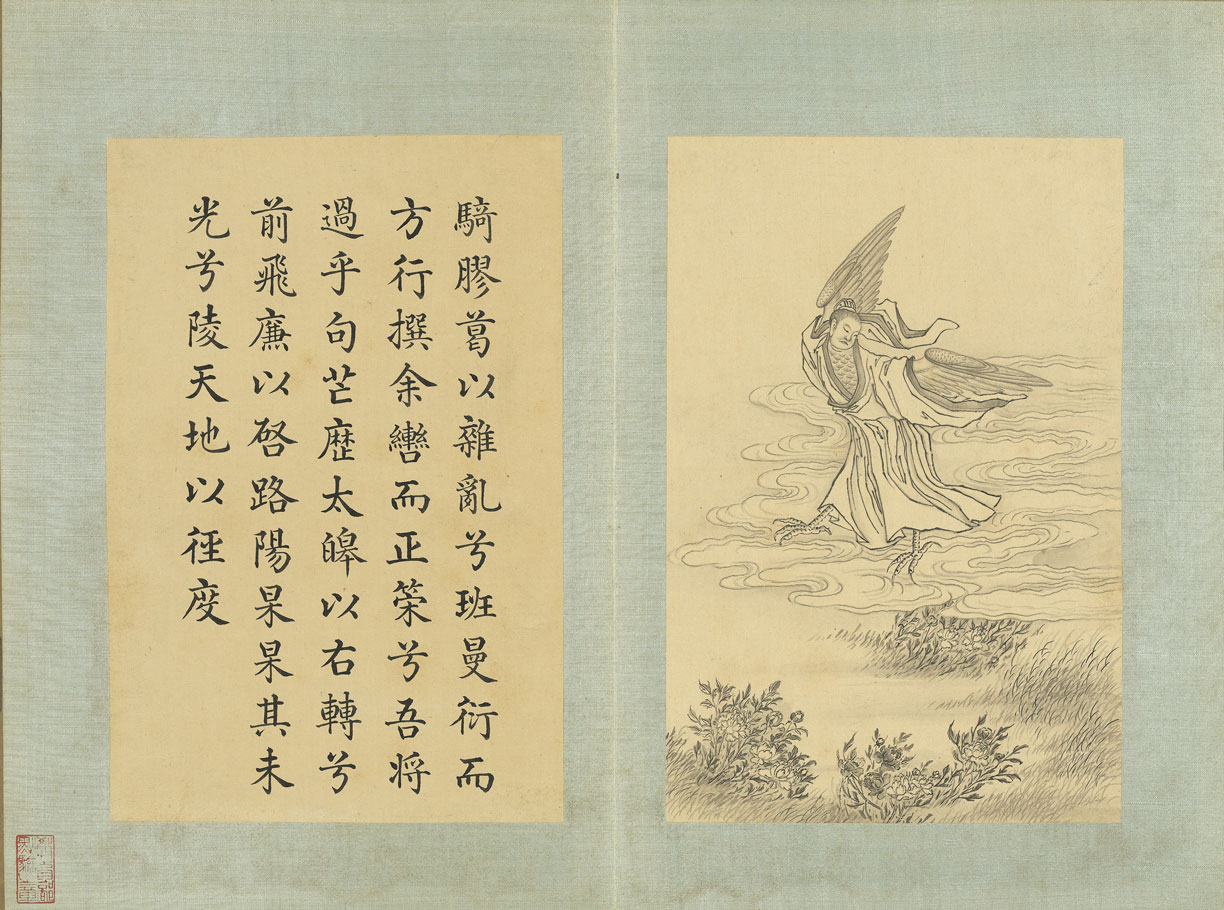 騎膠葛以雜亂兮班曼衍而
方行撰余轡而正策兮吾將
過乎句芒歷太皞以右轉兮
前飛廉以啓路陽杲杲其未
光兮陵天地以徑度